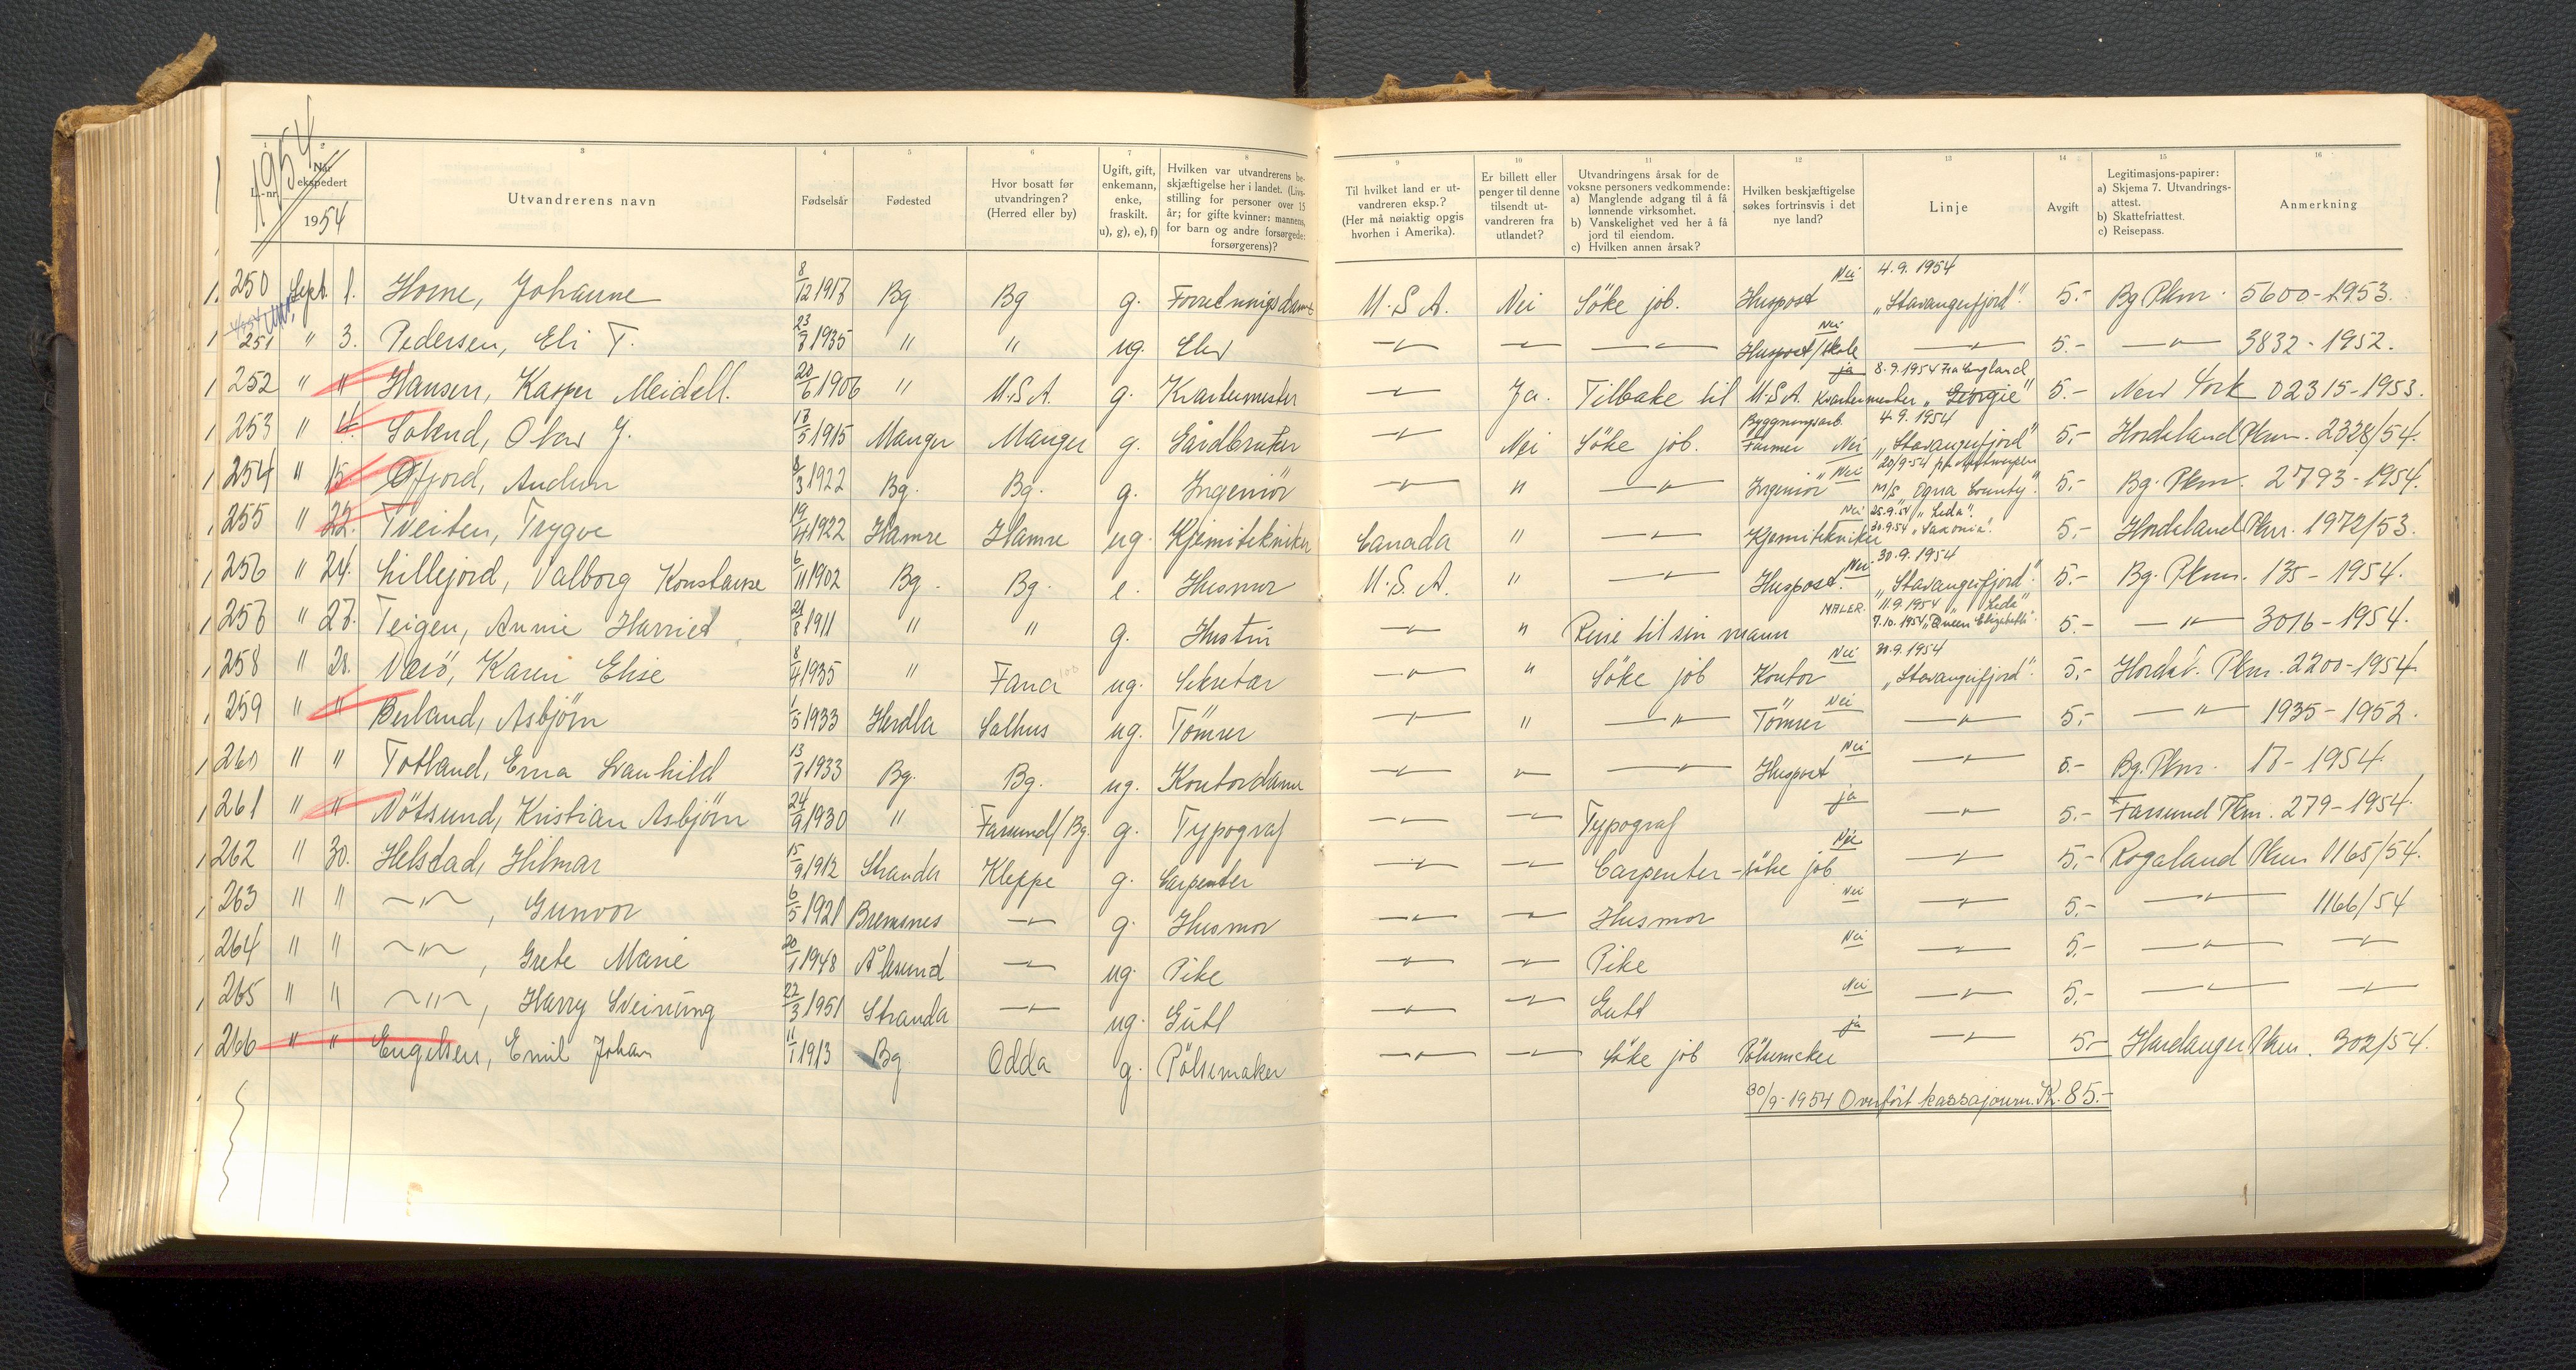 1954
1 2 3 4 5 6 7 8 9 10 11 12 13 14 15 16
L.-nr. Når ekspedert 1954 Utvandrerens navn Fødselsår Fødested Hvor bosatt før utvandringen? (Herred eller by) Ugift, gift, enkemann, enke, fraskilt. u), g), e), f) Hvilken var utvandrerens beskjæftigelse her i landet. (Livsstilling for personer over 15 år; for gifte kvinner: mannens, for barn og andre forsørgede: forsørgerens)? Til hvilket land er utvandreren eksp.? (Her må nøiaktig opgis hvorhen i Amerika). Er billett eller penger til denne tilsendt utvandreren fra utlandet? Utvandringens årsak for de voksne personers vedkommende: a) Manglende adgang til å få lønnende virksomhet. b) Vanskelighet ved her å få jord til eiendom. c) Hvilken annen årsak? Hvilken beskjæftigelse søkes fortrinsvis i det nye land? Linje Avgift Legitimasjons-papirer: a) Skjema 7. Utvandringsattest. b) Skattefriattest. c) Reisepass. Anmerkning
250 Sept. 1. Horne, Johanne 8/12 1917 Bg Bg g. Forretningsdame U.S.A. Nei Söke job. Huspost Nei 4.9.1954 „Stavangerfjord". 5.- Bg Pkm. 5600-1953.
251 " 3. Pedersen, Eli T. 23/8 1935 " " ug. Elev —"— —"— —"— Huspost/skole Nei —"— 5.- —"— 3832-1952.
252 " " Hansen, Kasper Meidell. 20/6 1906 " U.S.A. g. Kvartermester —"— Ja. Tilbake til U.S.A. Kvartermester ja 8.9.1954 Fra England „Georgie" 5.- New York 02315-1953.
253 " 4. Solend, Olav J. 17/5 1915 Manger Manger g. Gårdbruker —"— Nei Söke job. Byggningsarb. Farmer Nei 4.9.1954 „Stavangerfjord" 5.- Hordaland Pkm. 2328/54.
254 " 15. Øfjord, Audun 8/3 1922 Bg. Bg. g. Ingeniör —"— " —"— Ingeniör " Nei 20/9-54 frå Antwerpen M/S „Egna County". 5.- Bg. Pkm. 2793-1954.
255 " 22. Tveiten, Trygve 19/4 1922 Hamre Hamre ug. Kjemitekniker Canada " —"— Kjemitekniker Nei 25.9.54 „Leda". 30.9.54 „Saxonia". 5.- Hordaland Pkm. 1972/53.
256 " 24. Lillejord, Valborg Konstanse 6/11 1902 Bg. Bg. e. Husmor U.S.A. " —"— Huspost. Nei 30.9.1954 „Stavangerfjord". 5.- Bg. Pkm. 135-1954.
257 " 27. Teigen, Annie Harried 21/8 1911 " " g. Hustru —"— " Reise til sin mann MALER. 11.9.1954 „Leda" 7.10.1954 „Queen Elizabeth". 5.- —"— 3016-1954.
258 " 28. Værö, Karen Elise 8/4 1935 " Fana ug. Sekretær —"— " Söke job Kontor Nei 30.9.1954 „Stavangerfjord". 5.- Hordal. Pkm. 2200-1954.
259 " " Berland, Asbjörn 1/5 1933 Herdla Salhus ug. Tömrer —"— " —"— Tömrer Nei —"— 5.- —"— 1935-1952.
260 " " Totland, Erna Svanhild 13/7 1933 Bg. Bg. ug. Kontordame —"— —"— —"— Huspost Nei —"— 5.- Bg. Pkm. 17-1954.
261 " " Nötsund, Kristian Asbjörn 24/9 1930 " Farsund/Bg. g. Typograf —"— —"— Typograf ja —"— 5.- Farsund Pkm. 279-1954.
262 " 30. Helstad, Hilmar 15/9 1912 Stranda Kleppe g. Carpenter —"— —"— Carpenter - söke job Nei —"— 5.- Rogaland Pkm 1165/54.
263 " " —"—, Gunvor 6/5 1921 Bremsnes —"— g. Husmor —"— —"— Husmor Nei —"— 5.- —"— 1166/54
264 " " —"—, Grete Marie 20/1 1948 Ålesund —"— ug. Pike —"— —"— Pike Nei —"— 5.- —"— —"—
265 " " —"—, Harry Sveinung 22/3 1951 Stranda —"— ug. Gutt —"— —"— Gutt Nei —"— 5.- —"— —"—
266 " " Engelsen, Emil Johan 11/1 1913 Bg Odda g. Pölsemaker —"— —"— Söke job Pölsemaker ja —"— 5.- Hardanger Pkm. 302/54.
30/9-1954 Overfört kassajourn. Kr. 85.-